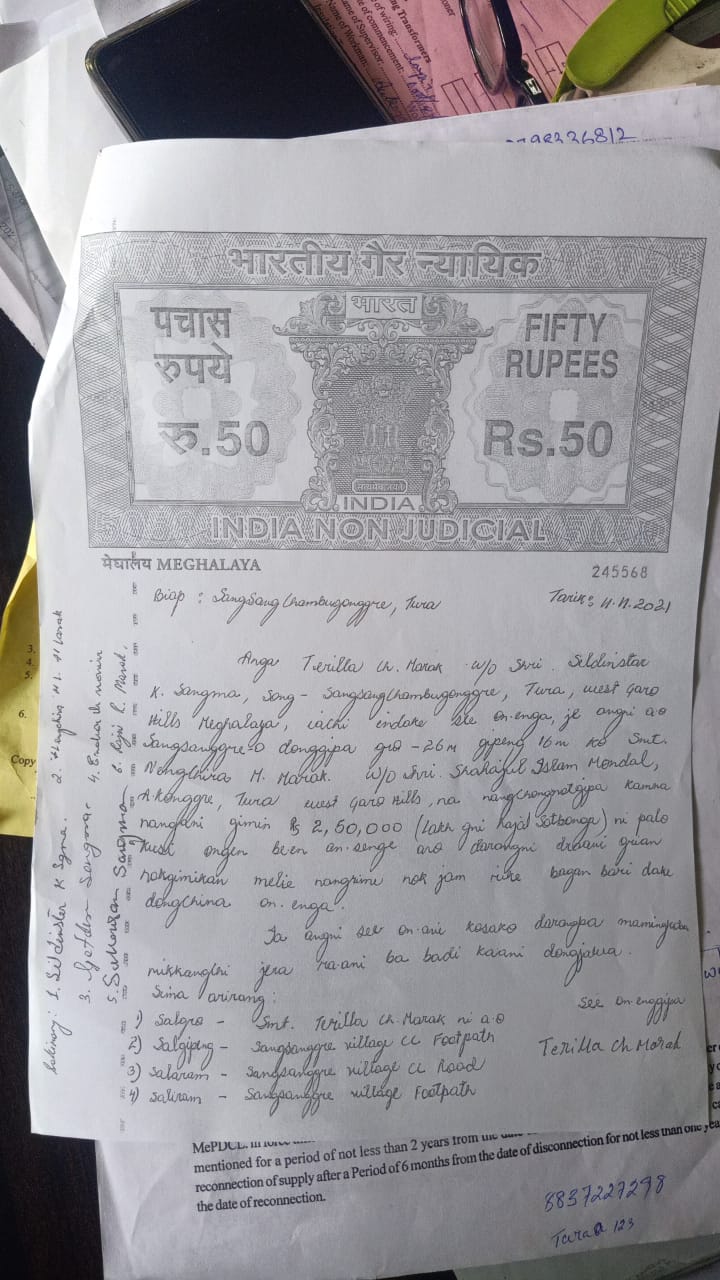 Transformers
of wiring:
of commencement:
Name of Supervisor:
Name of Workman:
98336812
भारतीय गैर न्यायिक
भारत
पचास
रुपये
रु.50
FIFTY
RUPEES
Rs.50
सत्यमेव जयते
INDIA
INDIA NON JUDICIAL
मेघालय MEGHALAYA
245568
Biap : Sangsang Chambugonggre, Tura
Tarik: 11.11.2021
Anga Terilla Ch. Marak w/o Shri. Seldinstar
K. Sangma, Song - Sangsang Chambugonggre, Tura, West Garo
Hills Meghalaya, iachi indake see on.enga, je angni a.o
Sangsanggre-o donggipa gro - 26m gipeng 16m ko Smt.
Nengchira M. Marak. w/o Shri. Shahajul Islam Mondal,
A.konggre, Tura west Garo Hills, na nangchongmotgipa kamna
nangani gimin Rs 2,50,000 (Lakh gni hajal Sotbonga) ni palo
an.senge aro darangni draani grian
nokgimikan melie nangrime nok jam rike bagan bari dake
dongchina on.enga.
Ia angni see on.ani kosako darangpa mamingkoba
mikkangchi jera ra.ani ba badi ka.ani dongjawa.
Sima arirang:
See on.enggipa
1) Salgro - Smt. Terilla Ch. Marak ni a.o
2) Salgipeng - Sangsanggre village CC Footpath
Terilla Ch Marak
3) Salaram - Sangsanggre village CC Road
4) Saliram - Sangsanggre village Footpath
Sakirang: 1. Seldinster K Sgma. 2.
3. Sangma. 4.
5. Sangma 6. Rajni R. Marak.
Copy
MePDCL.
mentioned for a period of not less than 2 years from the
reconnection of supply after a Period of 6 months from the date of disconnection for not less than one
the date of reconnection.
8837227298
Tura 123